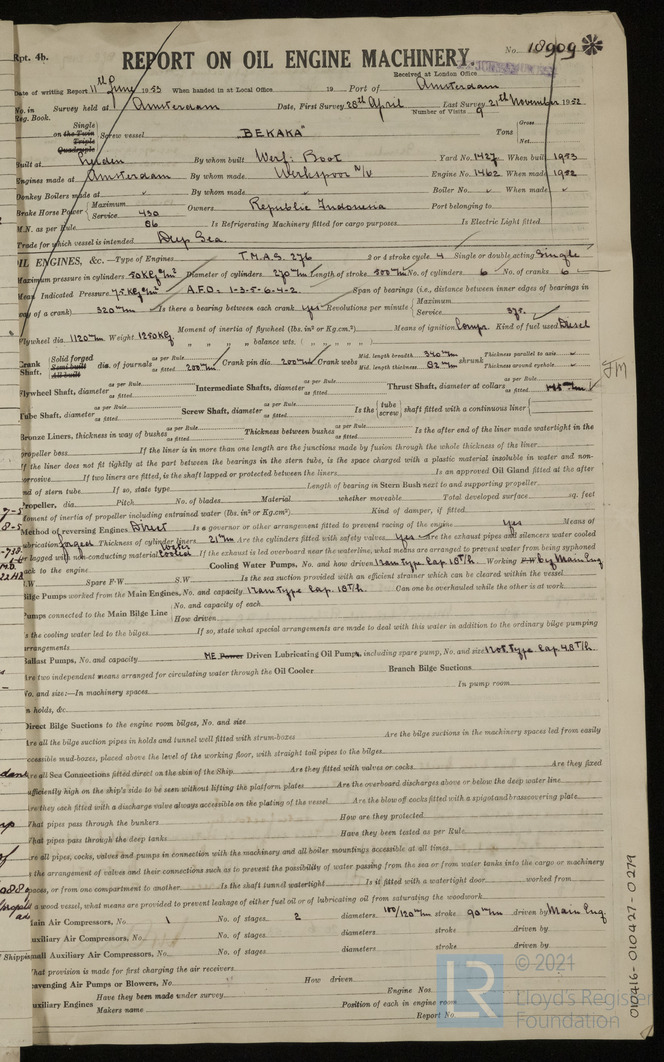 Rpt. 4b.
No. 18909
REPORT ON OIL ENGINE MACHINERY.
Received at London Office
Date of writing Report 11th June 1953 When handed in at Local Office 19 Port of Amsterdam
No. in Reg. Book. Survey held at Amsterdam Date, First Survey 28th April Last Survey 21th November 1952
Number of Visits 9
on the Single Twin Triple Quadruple Screw vessel "BEKAKA" Tons Gross Net
Built at Leiden By whom built Werf: Boot Yard No. 1427 When built 1953
Engines made at Amsterdam By whom made Werkspoor N/V Engine No. 1462 When made 1952
Donkey Boilers made at By whom made Boiler No. When made
Brake Horse Power Maximum Service 430 Owners Republic Indonesia Port belonging to
M.N. as per Rule 86 Is Refrigerating Machinery fitted for cargo purposes Is Electric Light fitted
Trade for which vessel is intended Deep Sea.
OIL ENGINES, &c.—Type of Engines T.M.A.S. 276 2 or 4 stroke cycle 4 Single or double acting Single
Maximum pressure in cylinders 50 Kg/cm² Diameter of cylinders 270 mm Length of stroke 500 mm No. of cylinders 6 No. of cranks 6
Mean Indicated Pressure 7.5 Kg/cm² A.F.O: 1-3-5-6-4-2 Span of bearings (i.e., distance between inner edges of bearings in
way of a crank) 320 mm Is there a bearing each side of each crank yes Revolutions per minute Maximum Service 375
Flywheel dia. 1120 mm Weight 1250 Kg Moment of inertia of flywheel (lbs. in² or Kg.cm²) Means of ignition Compr. Kind of fuel used Diesel
" " " balance wts. ( " " " " )
Crank Shaft, Solid forged Semi built All built dia. of journals as per Rule as fitted 200 mm Crank pin dia. 200 mm Crank webs Mid. length breadth 340 mm Mid. length thickness 82 mm shrunk Thickness parallel to axis Thickness around eyehole
Flywheel Shaft, diameter as per Rule as fitted Intermediate Shafts, diameter as per Rule as fitted Thrust Shaft, diameter at collars as per Rule as fitted
JM
Tube Shaft, diameter as per Rule as fitted Screw Shaft, diameter as per Rule as fitted Is the tube screw shaft fitted with a continuous liner
Bronze Liners, thickness in way of bushes as per Rule as fitted Thickness between bushes as per Rule as fitted Is the after end of the liner made watertight in the
propeller boss If the liner is in more than one length are the junctions made by fusion through the whole thickness of the liner
If the liner does not fit tightly at the part between the bearings in the stern tube, is the space charged with a plastic material insoluble in water and non-
corrosive If two liners are fitted, is the shaft lapped or protected between the liners Is an approved Oil Gland fitted at the after
end of stern tube If so, state type Length of bearing in Stern Bush next to and supporting propeller
Propeller, dia. Pitch No. of blades Material whether moveable Total developed surface sq. feet
Moment of inertia of propeller including entrained water (lbs. in² or Kg.cm²) Kind of damper, if fitted
Method of reversing Engines Direct Is a governor or other arrangement fitted to prevent racing of the engine yes Means of
lubrication forced Thickness of cylinder liners 21 mm Are the cylinders fitted with safety valves yes Are the exhaust pipes and silencers water cooled
or lagged with non-conducting material Water Cooled If the exhaust is led overboard near the waterline, what means are arranged to prevent water from being syphoned
back to the engine Cooling Water Pumps, No. and how driven 1 ram type Cap. 18 T/h. Working by Main Eng
F.W. Spare F.W. S.W. Is the sea suction provided with an efficient strainer which can be cleared within the vessel
Bilge Pumps worked from the Main Engines, No. and capacity 1 ram type Cap. 18 T/h. Can one be overhauled while the other is at work
Pumps connected to the Main Bilge Line No. and capacity of each How driven
Is the cooling water led to the bilges If so, state what special arrangements are made to deal with this water in addition to the ordinary bilge pumping
arrangements
Ballast Pumps, No. and capacity ME Power Driven Lubricating Oil Pumps, including spare pump, No. and size 1 rot. type Cap. 4.8 T/h.
Are two independent means arranged for circulating water through the Oil Cooler Branch Bilge Suctions
No. and size:—In machinery spaces In pump room
In holds, &c.
Direct Bilge Suctions to the engine room bilges, No. and size
Are all the bilge suction pipes in holds and tunnel well fitted with strum-boxes Are the bilge suctions in the machinery spaces led from easily
accessible mud-boxes, placed above the level of the working floor, with straight tail pipes to the bilges
Are all Sea Connections fitted direct on the skin of the Ship Are they fitted with valves or cocks Are they fixed
sufficiently high on the ship's side to be seen without lifting the platform plates Are the overboard discharges above or below the deep water line
Are they each fitted with a discharge valve always accessible on the plating of the vessel Are the blow off cocks fitted with a spigot and brass covering plate
What pipes pass through the bunkers How are they protected
What pipes pass through the deep tanks Have they been tested as per Rule
Are all pipes, cocks, valves and pumps in connection with the machinery and all boiler mountings accessible at all times
Is the arrangement of valves and their connections such as to prevent the possibility of water passing from the sea or from water tanks into the cargo or machinery
spaces, or from one compartment to another Is the shaft tunnel watertight Is it fitted with a watertight door worked from
If a wood vessel, what means are provided to prevent leakage of either fuel oil or of lubricating oil from saturating the woodwork
Main Air Compressors, No. 1 No. of stages 2 diameters 100/120 mm stroke 90 mm driven by Main Eng
Auxiliary Air Compressors, No. No. of stages diameters stroke driven by
Small Auxiliary Air Compressors, No. No. of stages diameters stroke driven by
What provision is made for first charging the air receivers
Scavenging Air Pumps or Blowers, No. How driven
Auxiliary Engines Have they been made under survey Engine Nos.
Makers name Position of each in engine room
Report No.
010416-010427-0279
LR © 2021
Lloyd's Register
Foundation